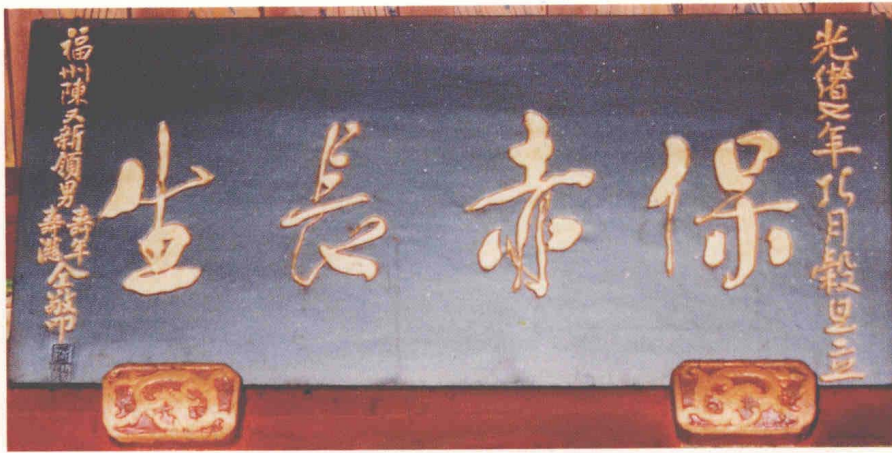 光緒七年巧月穀旦立
保赤長生
福州陳又新領男壽年
壽
仝敬叩